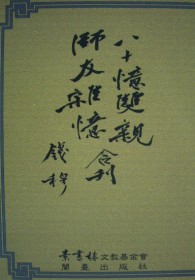 八十憶雙親
師友雜憶合刊
錢穆
素書樓文教基金會
蘭臺出版社